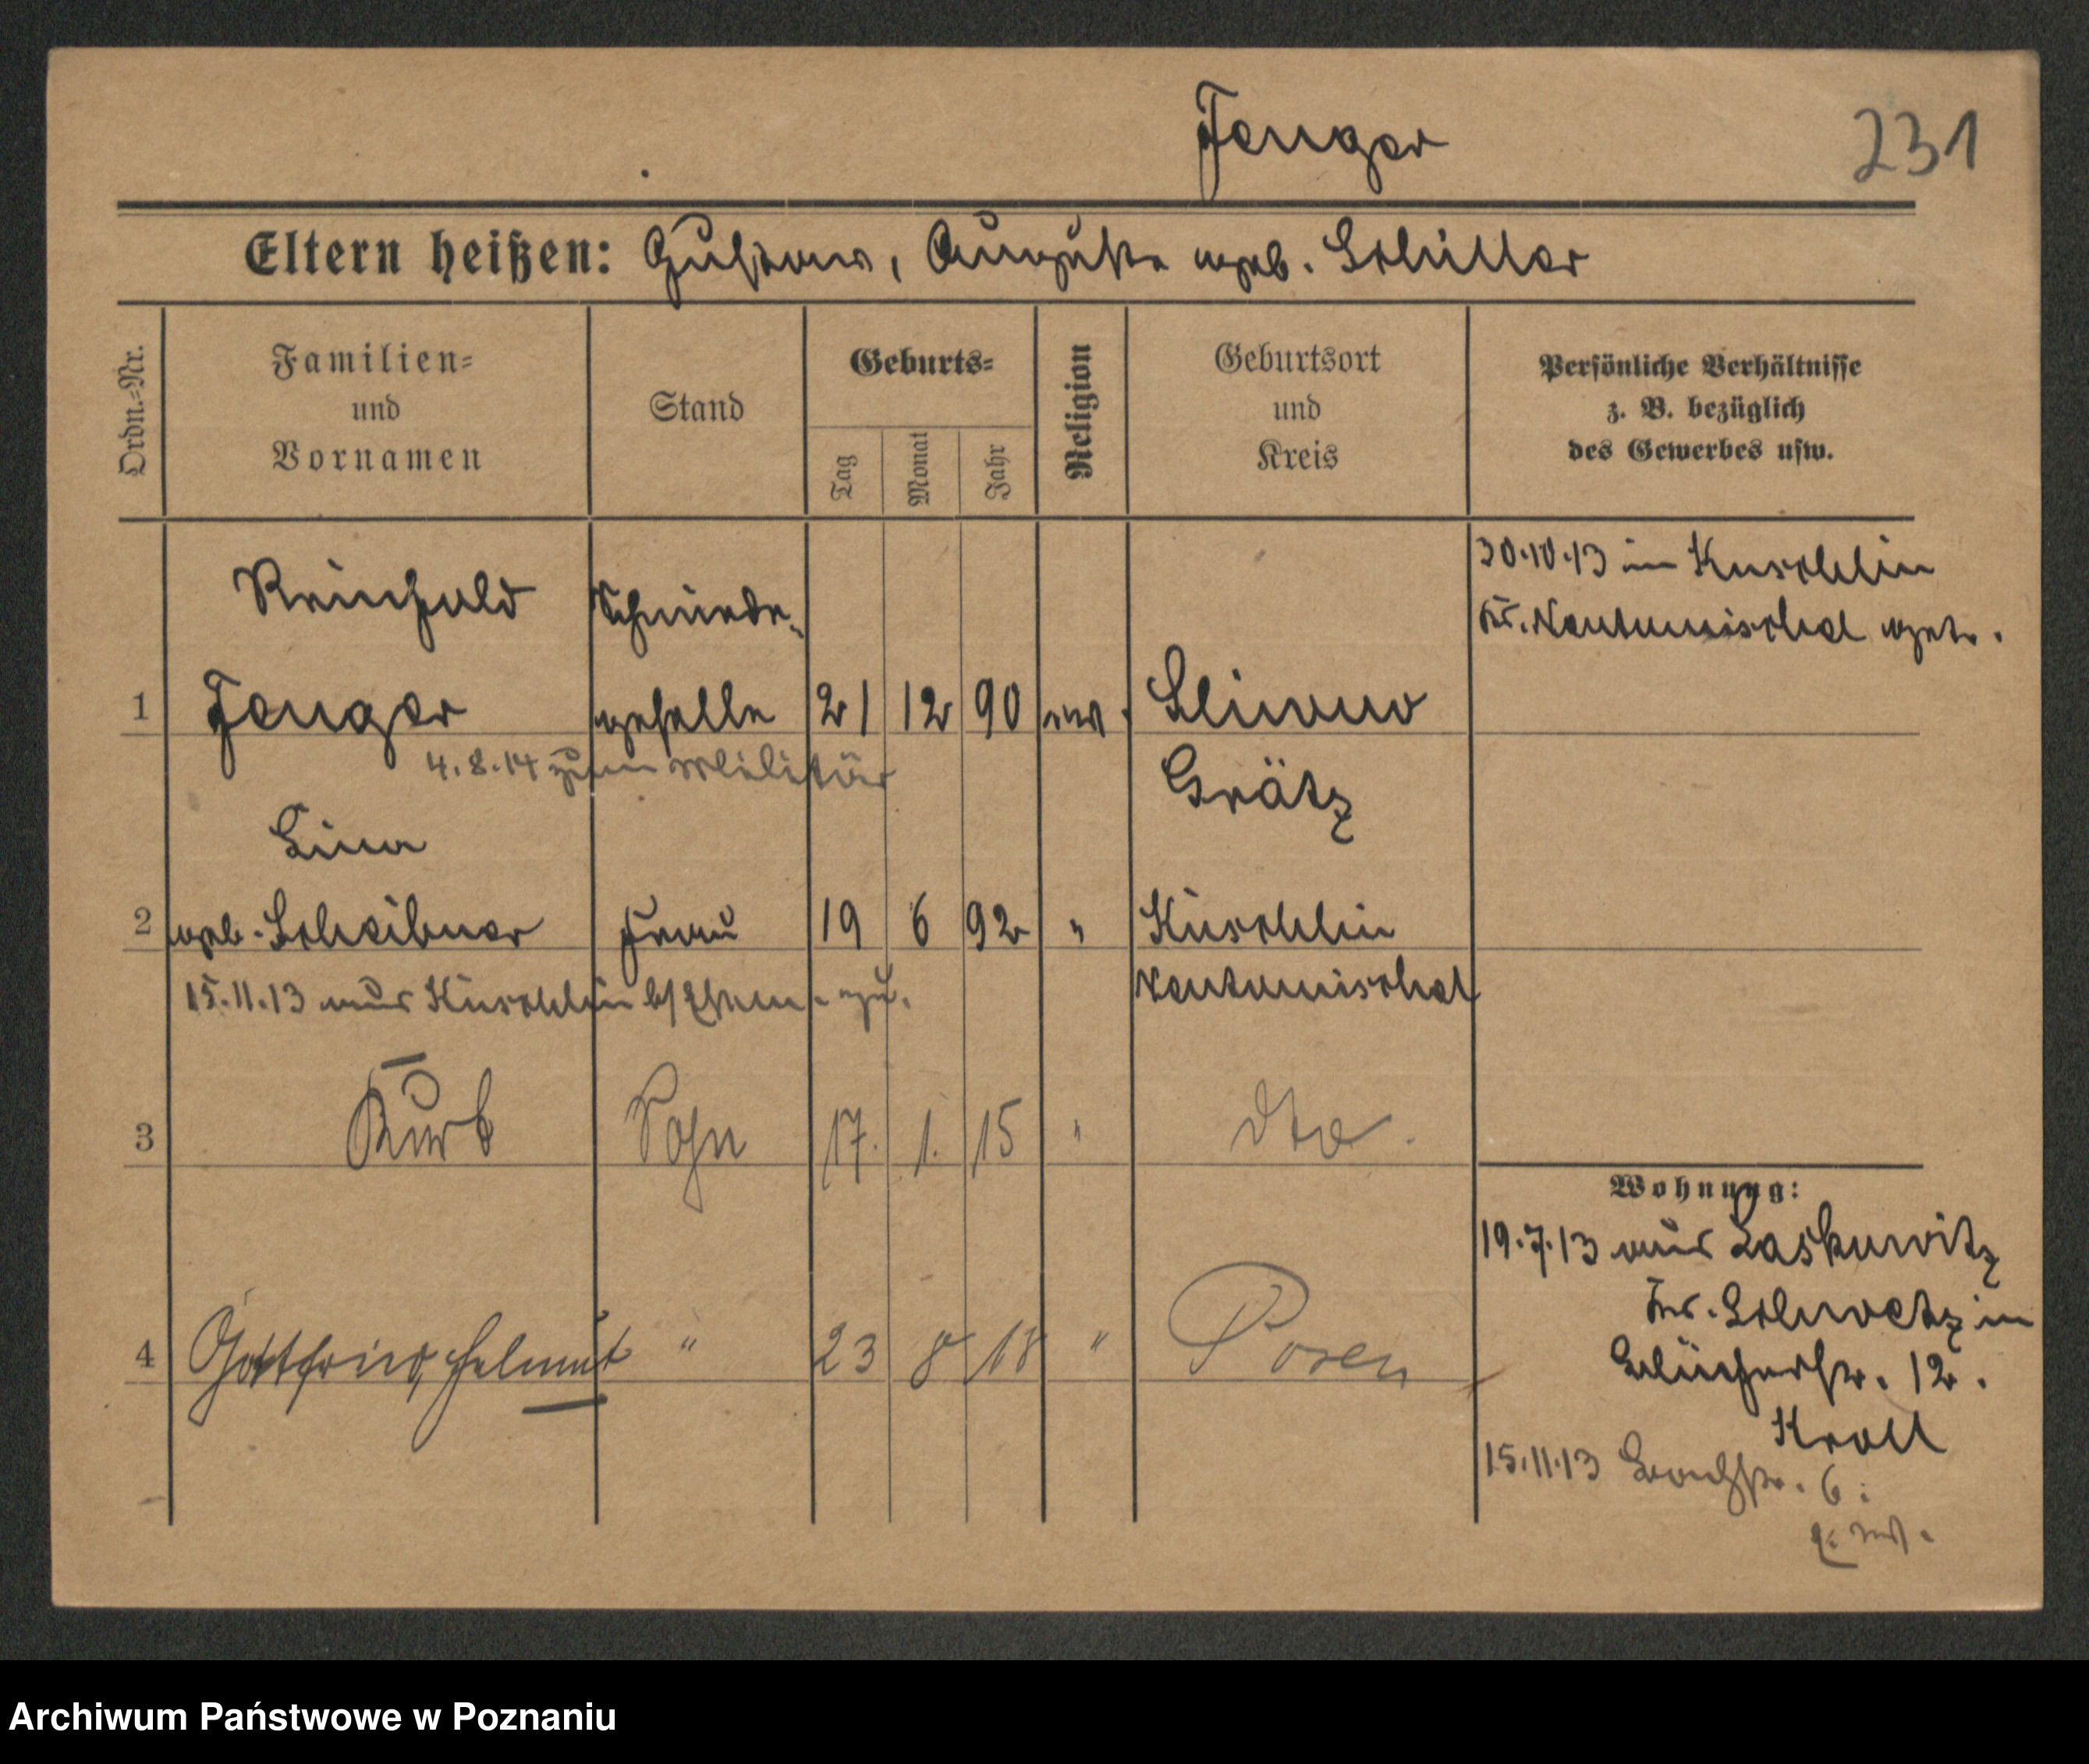 Fenger
231
Eltern heißen: Gustav, Auguste geb. Schiller
Ordn.-Nr.
Familien-
und
Vornamen
Stand
Geburts-
Tag
Monat
Jahr
Religion
Geburtsort
und
Kreis
Persönliche Verhältnisse
z. B. bezüglich
des Gewerbes usw.
30.10.13 in Kuschlin
Kr. Neutomischel getr.
Reinhold Schmiede-
1 Fenger geselle 21 12 90 ev. Sliwno
4.8.14 zum Militär
Grätz
Lina
2 geb. Scheibner Frau 19 6 92 " Kuschlin
15.11.13 aus Kuschlin zu.
Neutomischel
3 Kurt Sohn 17. 1. 15 " dto.
Wohnung:
19.7.13 aus Laskowitz
Kr. Schwetz in
Blücherstr. 12.
4 Gottfried, Helmut " 23 8 18 " Posen
Kroll
15.11.13 Bachstr. 6.
Archiwum Państwowe w Poznaniu